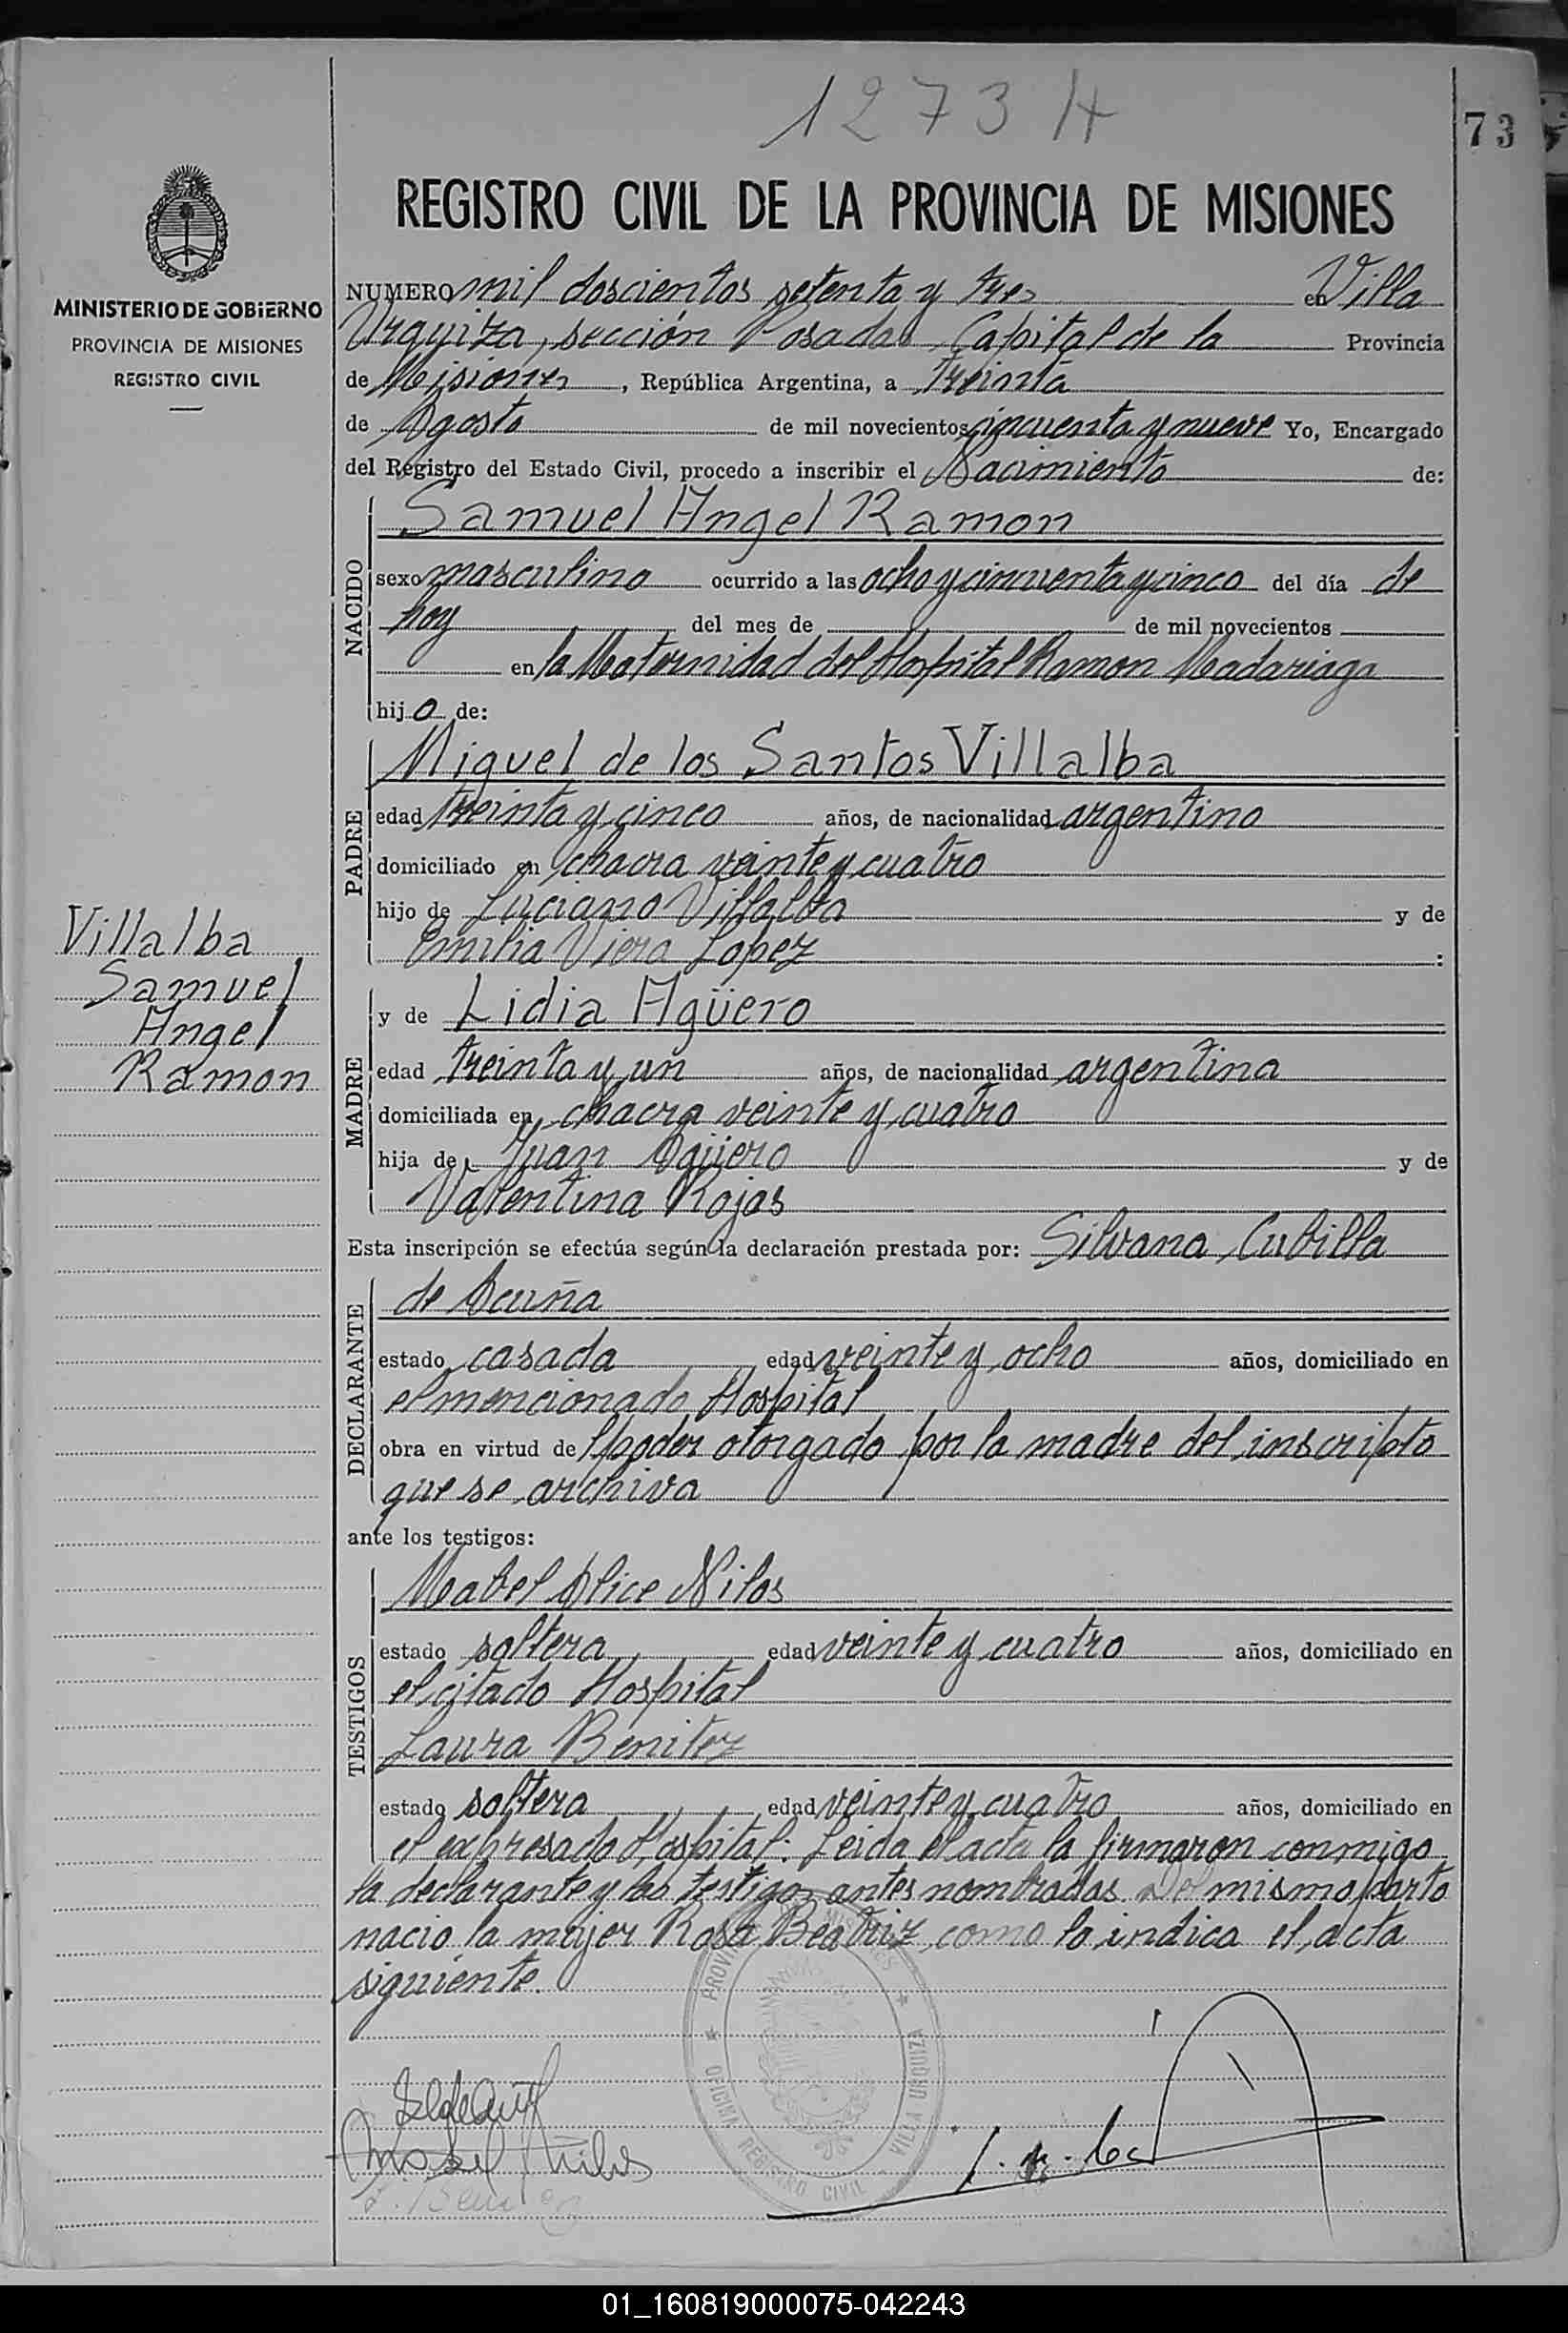 1273 H
73
REGISTRO CIVIL DE LA PROVINCIA DE MISIONES
MINISTERIO DE GOBIERNO
PROVINCIA DE MISIONES
REGISTRO CIVIL
NUMERO mil doscientos setenta y tres en Villa
Urquiza, sección Posadas Capital de la Provincia
de Misiones, República Argentina, a Treinta
de Agosto de mil novecientos cincuenta y nueve Yo, Encargado
del Registro del Estado Civil, procedo a inscribir el Nacimiento de:
NACIDO
Samuel Angel Ramon
sexo masculino ocurrido a las ocho y cincuenta y cinco del día de
hoy del mes de de mil novecientos
en la Maternidad del Hospital Ramon Madariaga
hijo de:
PADRE
Miguel de los Santos Villalba
edad treinta y cinco años, de nacionalidad argentino
domiciliado en chacra veinte y cuatro
hijo de Luciano Villalba y de
Emilia Viera Lopez :
Villalba
Samuel
Angel
Ramon
MADRE
y de Lidia Agüero
edad treinta y un años, de nacionalidad argentina
domiciliada en chacra veinte y cuatro
hija de Juan Agüero y de
Valentina Rojas
Esta inscripción se efectúa según la declaración prestada por: Silvana Cubilla
DECLARANTE
de Acuña
estado casada edad veinte y ocho años, domiciliado en
el mencionado Hospital
obra en virtud de poder otorgado por la madre del inscripto
que se archiva
ante los testigos:
TESTIGOS
Mabel Alice Nilos
estado soltera edad veinte y cuatro años, domiciliado en
el citado Hospital
Laura Benitez
estado soltera edad veinte y cuatro años, domiciliado en
el expresado Hospital. Leida el acta la firmaron conmigo
la declarante y los testigos antes nombradas. Del mismo parto
nacio la mujer Rosa Beatriz como lo indica el acta
siguiente.
OFICINA REGISTRO CIVIL VILLA URQUIZA
01_160819000075-042243